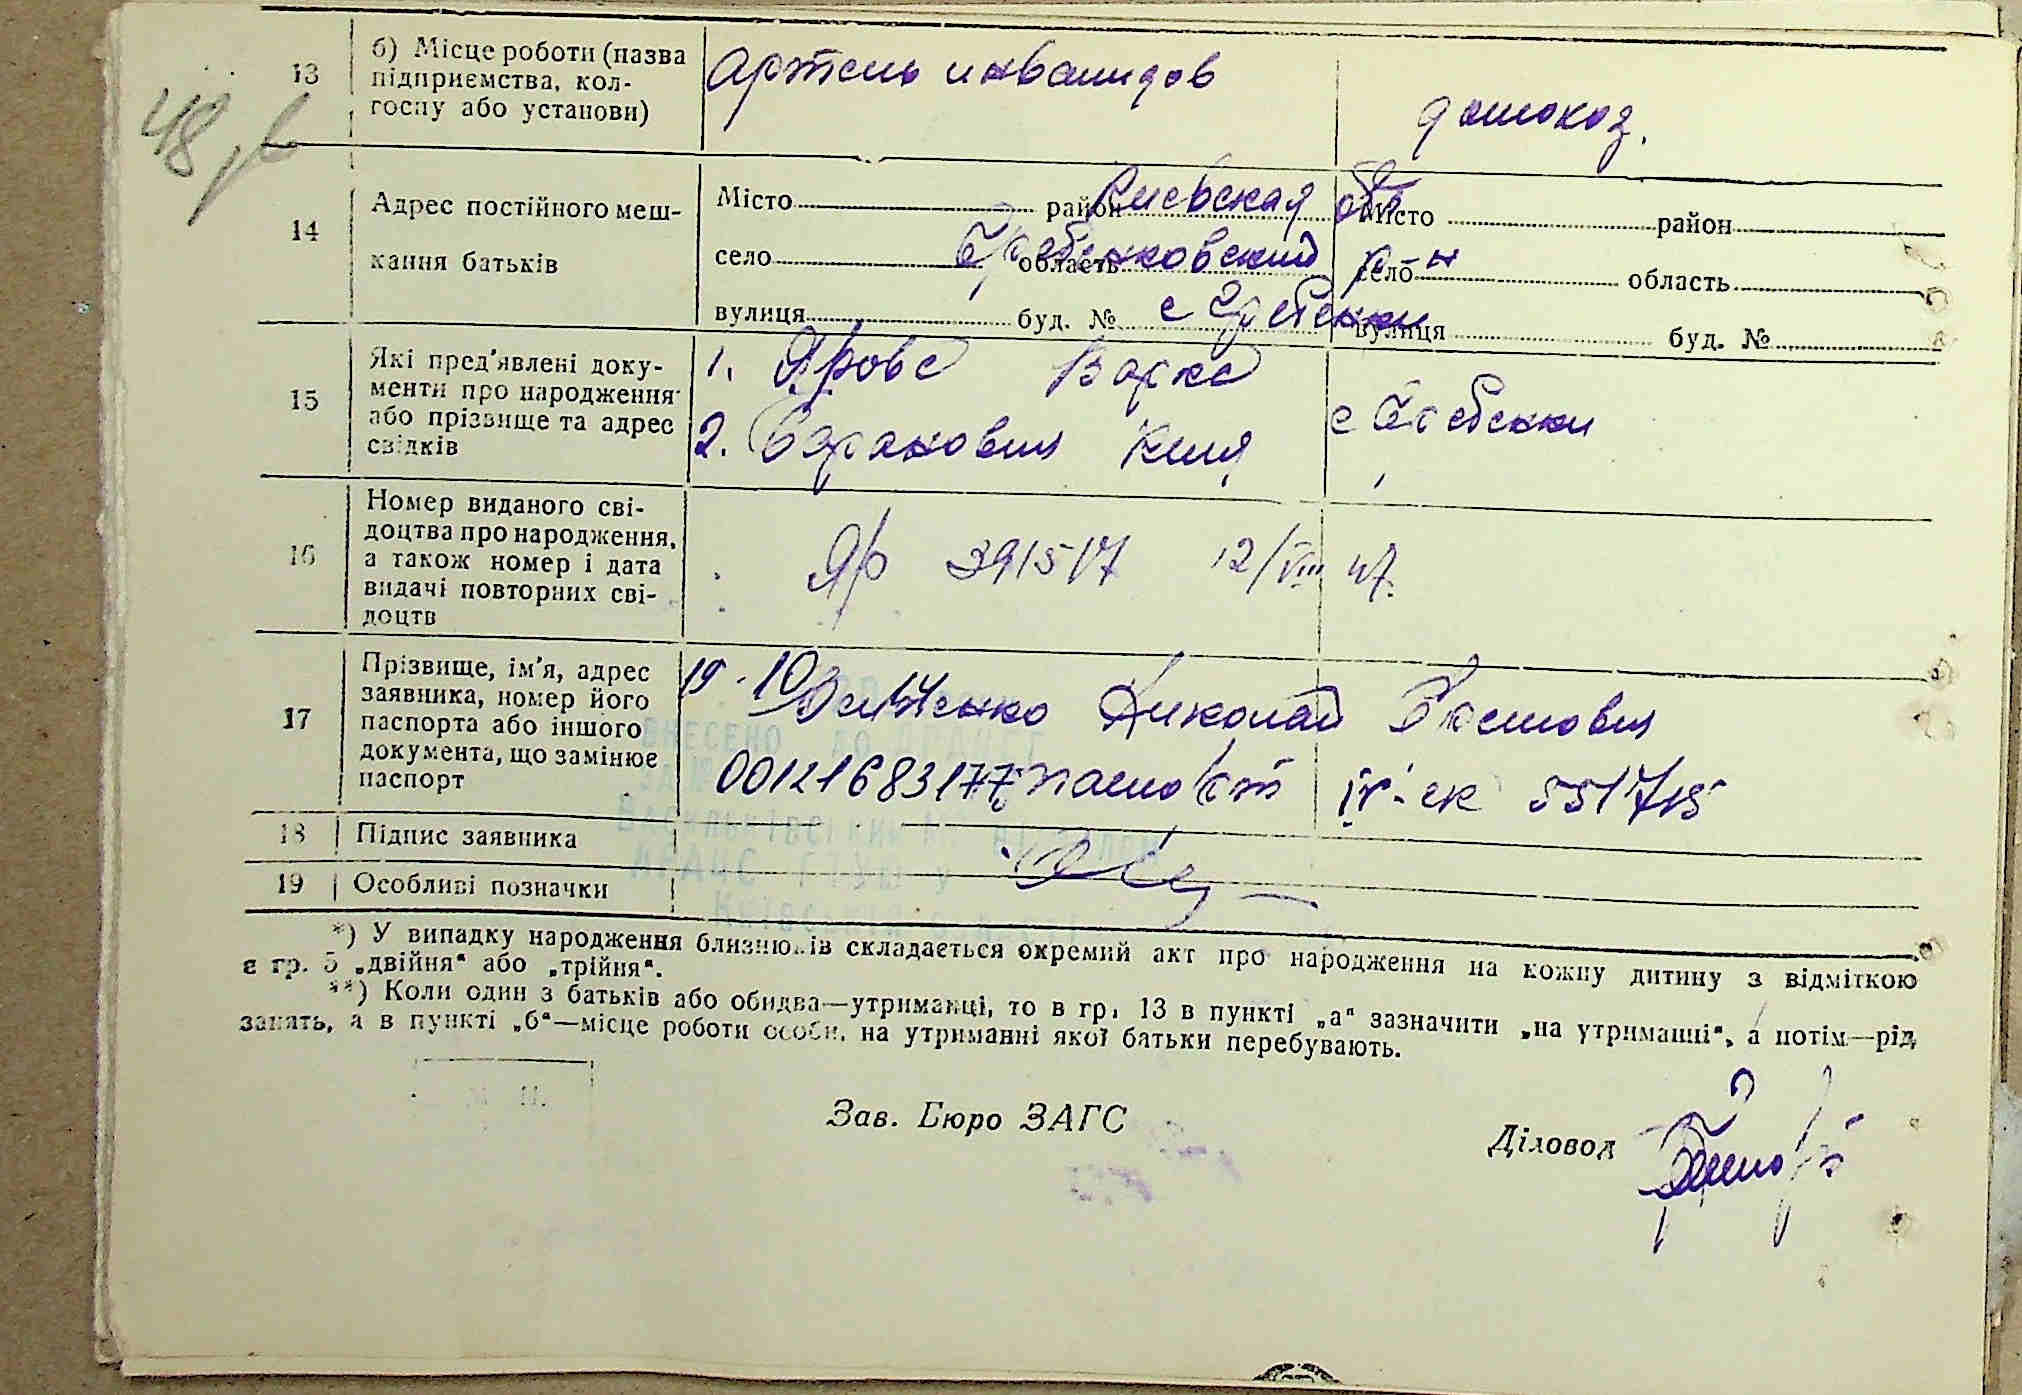 13
б) Місце роботи (назва
підприємства, кол-
госпу або установи)
Артель инвалидов
домохоз.
48
14
Адрес постійного меш-
кання батьків
Місто район Киевская обл
село область Гребенковский р-н
вулиця буд. № с Гребенки
Місто район
село область
вулиця буд. №
15
Які пред'явлені доку-
менти про народження
або прізвище та адрес
свідків
1. Ярова Варка
2. Баранович с Гребенки
16
Номер виданого сві-
доцтва про народження,
а також номер і дата
видачі повторних сві-
доцтв
Яр 391517 12/VIII 47.
17
Прізвище, ім'я, адрес
заявника, номер його
паспорта або іншого
документа, що замінює
паспорт
19 · 10 Николай
00121683177 паспорт IV-ск 551715
ВНЕСЕНО ДО ДРАЦСГ
Васильківський
ДРАЦС ГТУЮ у
Київській області
18 Підпис заявника
19 Особливі позначки
*) У випадку народження близнюків складається окремий акт про народження на кожну дитину з відміткою
в гр. 5 „двійня“ або „трійня“.
**) Коли один з батьків або обидва—утриманці, то в гр. 13 в пункті „а“ зазначити „на утриманні“, а потім—рід
занять, а в пункті „б“—місце роботи особи, на утриманні якої батьки перебувають.
М. П.
Зав. Бюро ЗАГС
Діловод